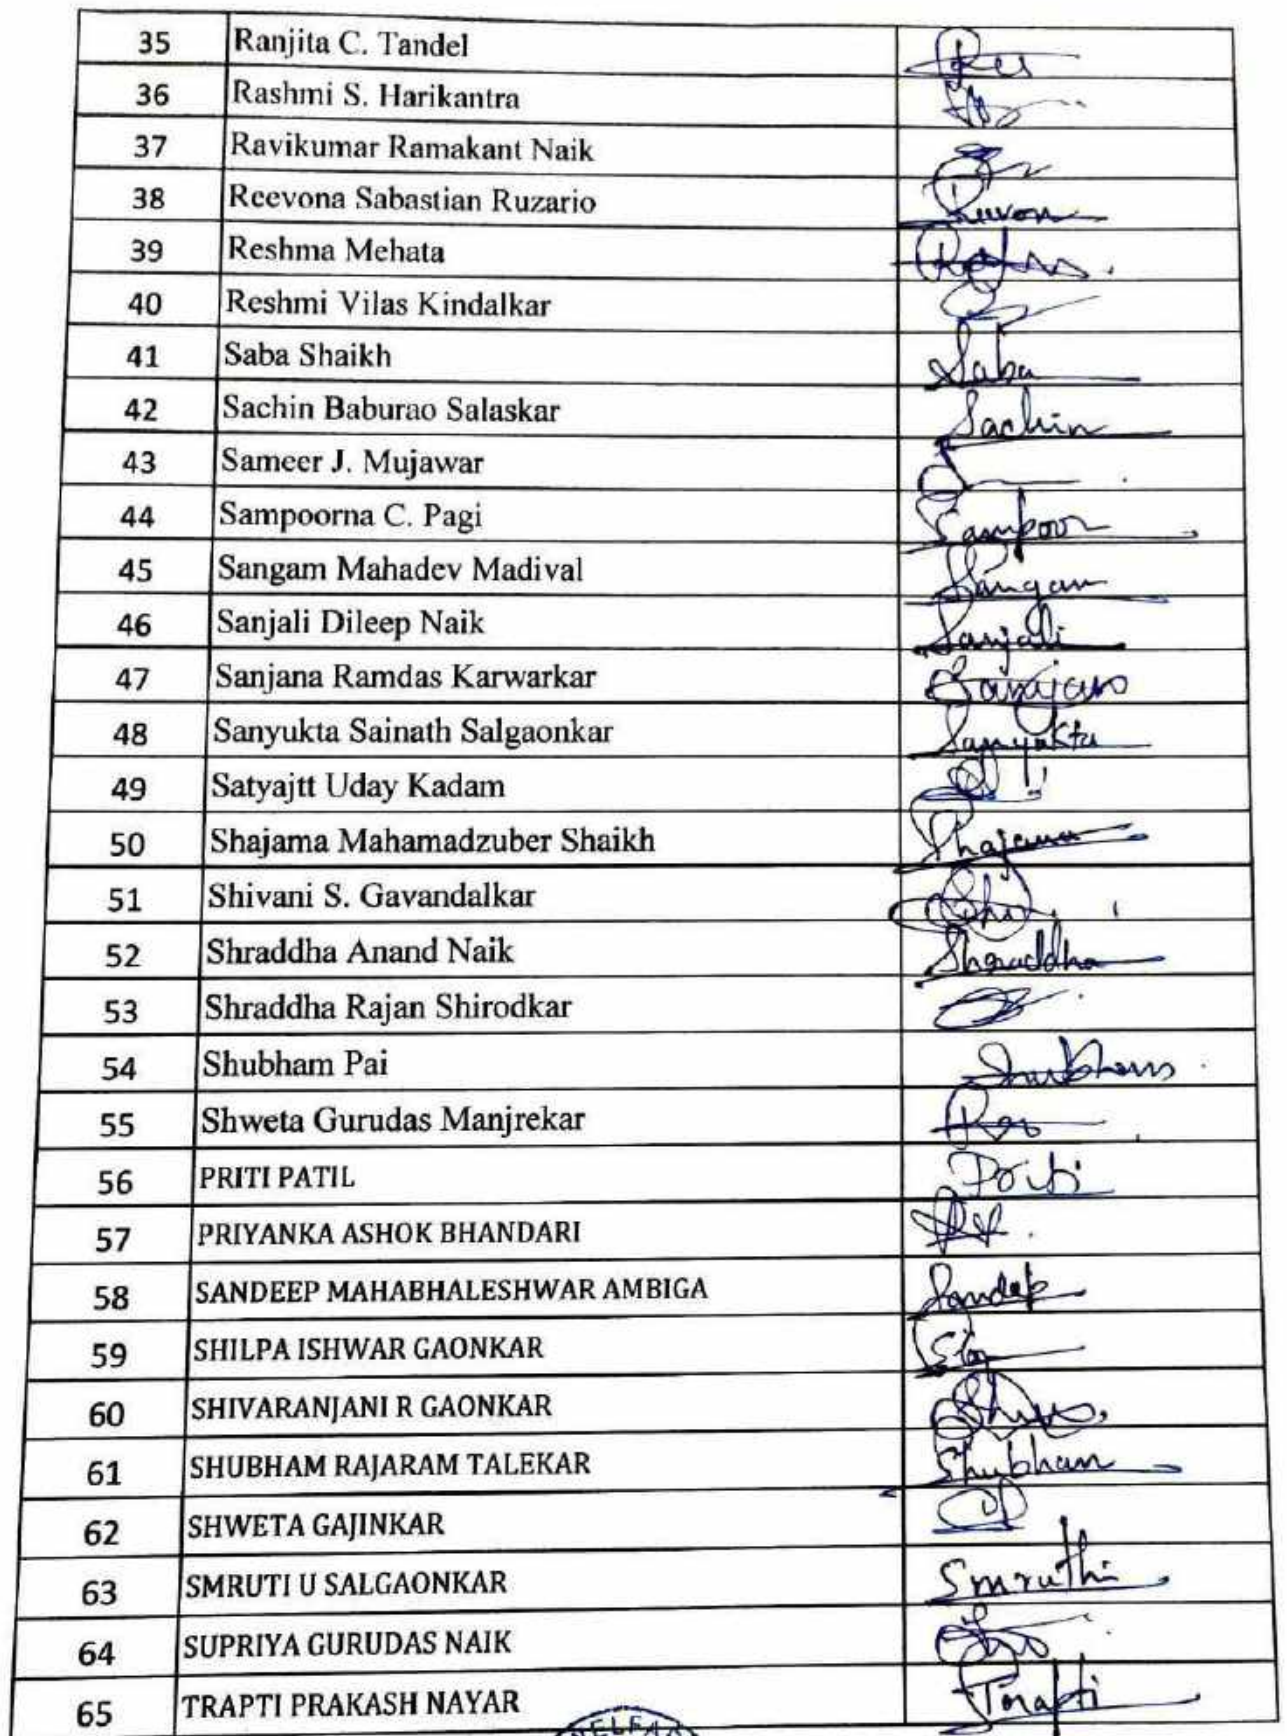 35 Ranjita C. Tandel
36 Rashmi S. Harikantra
37 Ravikumar Ramakant Naik
38 Reevona Sabastian Ruzario Reevon
39 Reshma Mehata
40 Reshmi Vilas Kindalkar
41 Saba Shaikh Saba
42 Sachin Baburao Salaskar Sachin
43 Sameer J. Mujawar
44 Sampoorna C. Pagi Sampoor
45 Sangam Mahadev Madival Sangam
46 Sanjali Dileep Naik Sanjali
47 Sanjana Ramdas Karwarkar Sanajana
48 Sanyukta Sainath Salgaonkar Sanyukta
49 Satyajtt Uday Kadam
50 Shajama Mahamadzuber Shaikh Shajama
51 Shivani S. Gavandalkar Shi
52 Shraddha Anand Naik Shraddha
53 Shraddha Rajan Shirodkar
54 Shubham Pai Shubham
55 Shweta Gurudas Manjrekar
56 PRITI PATIL Priti
57 PRIYANKA ASHOK BHANDARI
58 SANDEEP MAHABHALESHWAR AMBIGA Sandeep
59 SHILPA ISHWAR GAONKAR
60 SHIVARANJANI R GAONKAR
61 SHUBHAM RAJARAM TALEKAR Shubham
62 SHWETA GAJINKAR
63 SMRUTI U SALGAONKAR Smruthi
64 SUPRIYA GURUDAS NAIK
65 TRAPTI PRAKASH NAYAR Trapti